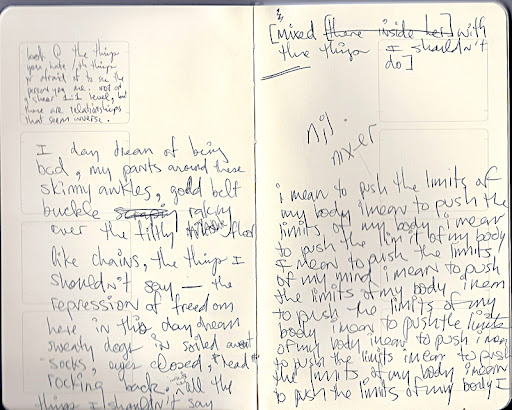 look @ the things
you hate / the things
yr afraid of to see the
person you are. not on
a sheer 1:1 level, but
there are relationships
that seem inverse.
I day dream of being
bad, my pants around these
skinny ankles, gold belt
buckle raking
over the filthy floor
like chains, the things I
shouldn't say — the
repression of freedom
here in this day dream
sweaty dogs in soiled
socks, eyes closed, head
rocking back. all the
things I shouldn't say
[mixed there inside her] with
the things I shouldn't
do]
mixer
i mean to push the limits of
my body i mean to push the
limits of my body i mean
to push the limit of my body
I mean to push the limits
of my mind i mean to push
the limits of my body i mean
to push the limits of my
body i mean to push the limits
of my body i mean to push i mean
to push the limits i mean to push
the limits of my body i mean
to push the limits of my body I